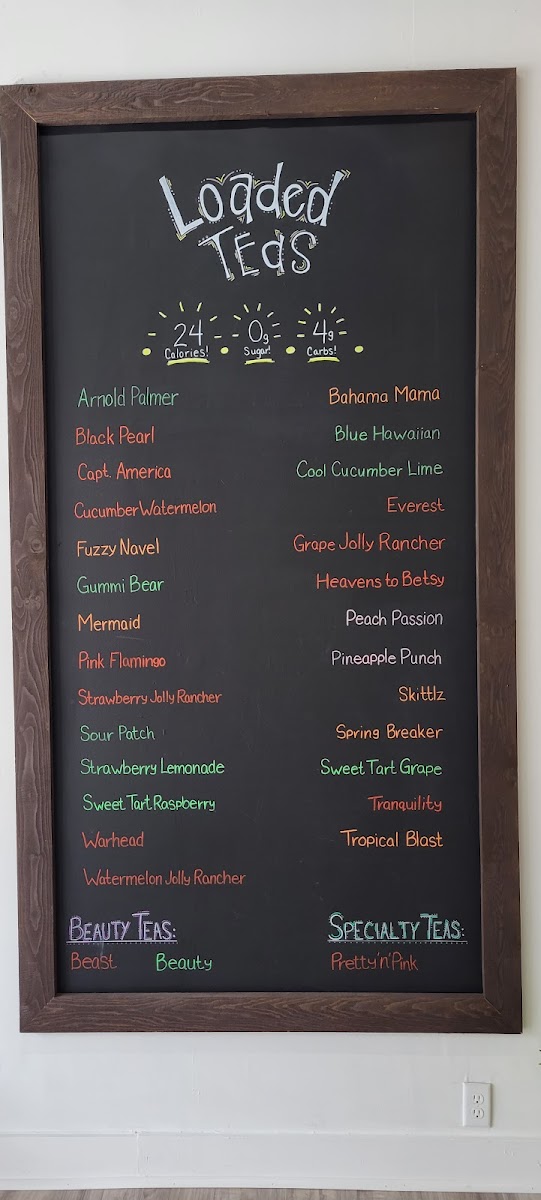 Loaded
Teas
24 0g 4g
Calories! Sugar! Carbs!
Arnold Palmer
Black Pearl
Capt. America
Cucumber Watermelon
Fuzzy Navel
Gummi Bear
Mermaid
Pink Flamingo
Strawberry Jolly Rancher
Sour Patch
Strawberry Lemonade
Sweet Tart Raspberry
Warhead
Watermelon Jolly Rancher
Bahama Mama
Blue Hawaiian
Cool Cucumber Lime
Everest
Grape Jolly Rancher
Heavens to Betsy
Peach Passion
Pineapple Punch
Skittlz
Spring Breaker
Sweet Tart Grape
Tranquility
Tropical Blast
Beauty Teas:
Beast Beauty
Specialty Teas:
Pretty'n'Pink